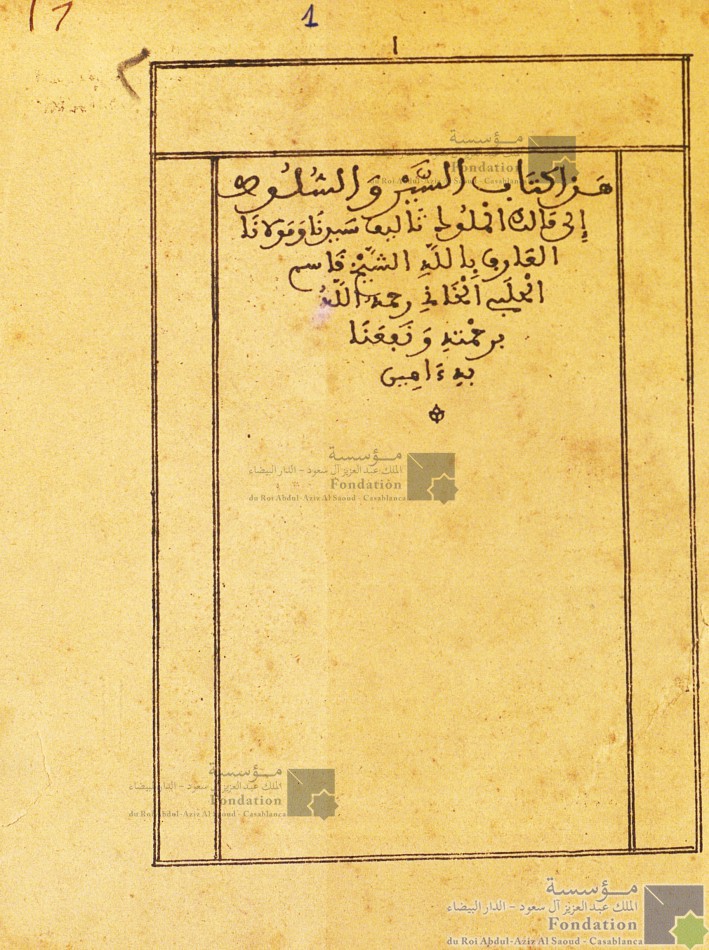 1
١
هذا كتاب السَّيْر وَالسُّلُوك
إلى مَالك الملوك تَاليف سَيدنَا وَمَوْلَانَا
العَارف بِاللَّهِ الشَّيْخ قَاسم
الحلَبي الخَاني رحمهُ اللَّهُ
برحْمتهِ وَنَفَعَنَا
بهِ ءَامين
مؤسسة
الملك عبد العزيز آل سعود - الدار البيضاء
Fondation
du Roi Abdul-Aziz Al Saoud - Casablanca
مؤسسة
الملك عبد العزيز آل سعود - الدار البيضاء
Fondation
du Roi Abdul-Aziz Al Saoud - Casablanca
مؤسسة
الملك عبد العزيز آل سعود - الدار البيضاء
Fondation
du Roi Abdul-Aziz Al Saoud - Casablanca
مؤسسة
Fondation
du Roi Abdul-Aziz Al Saoud - Casablanca